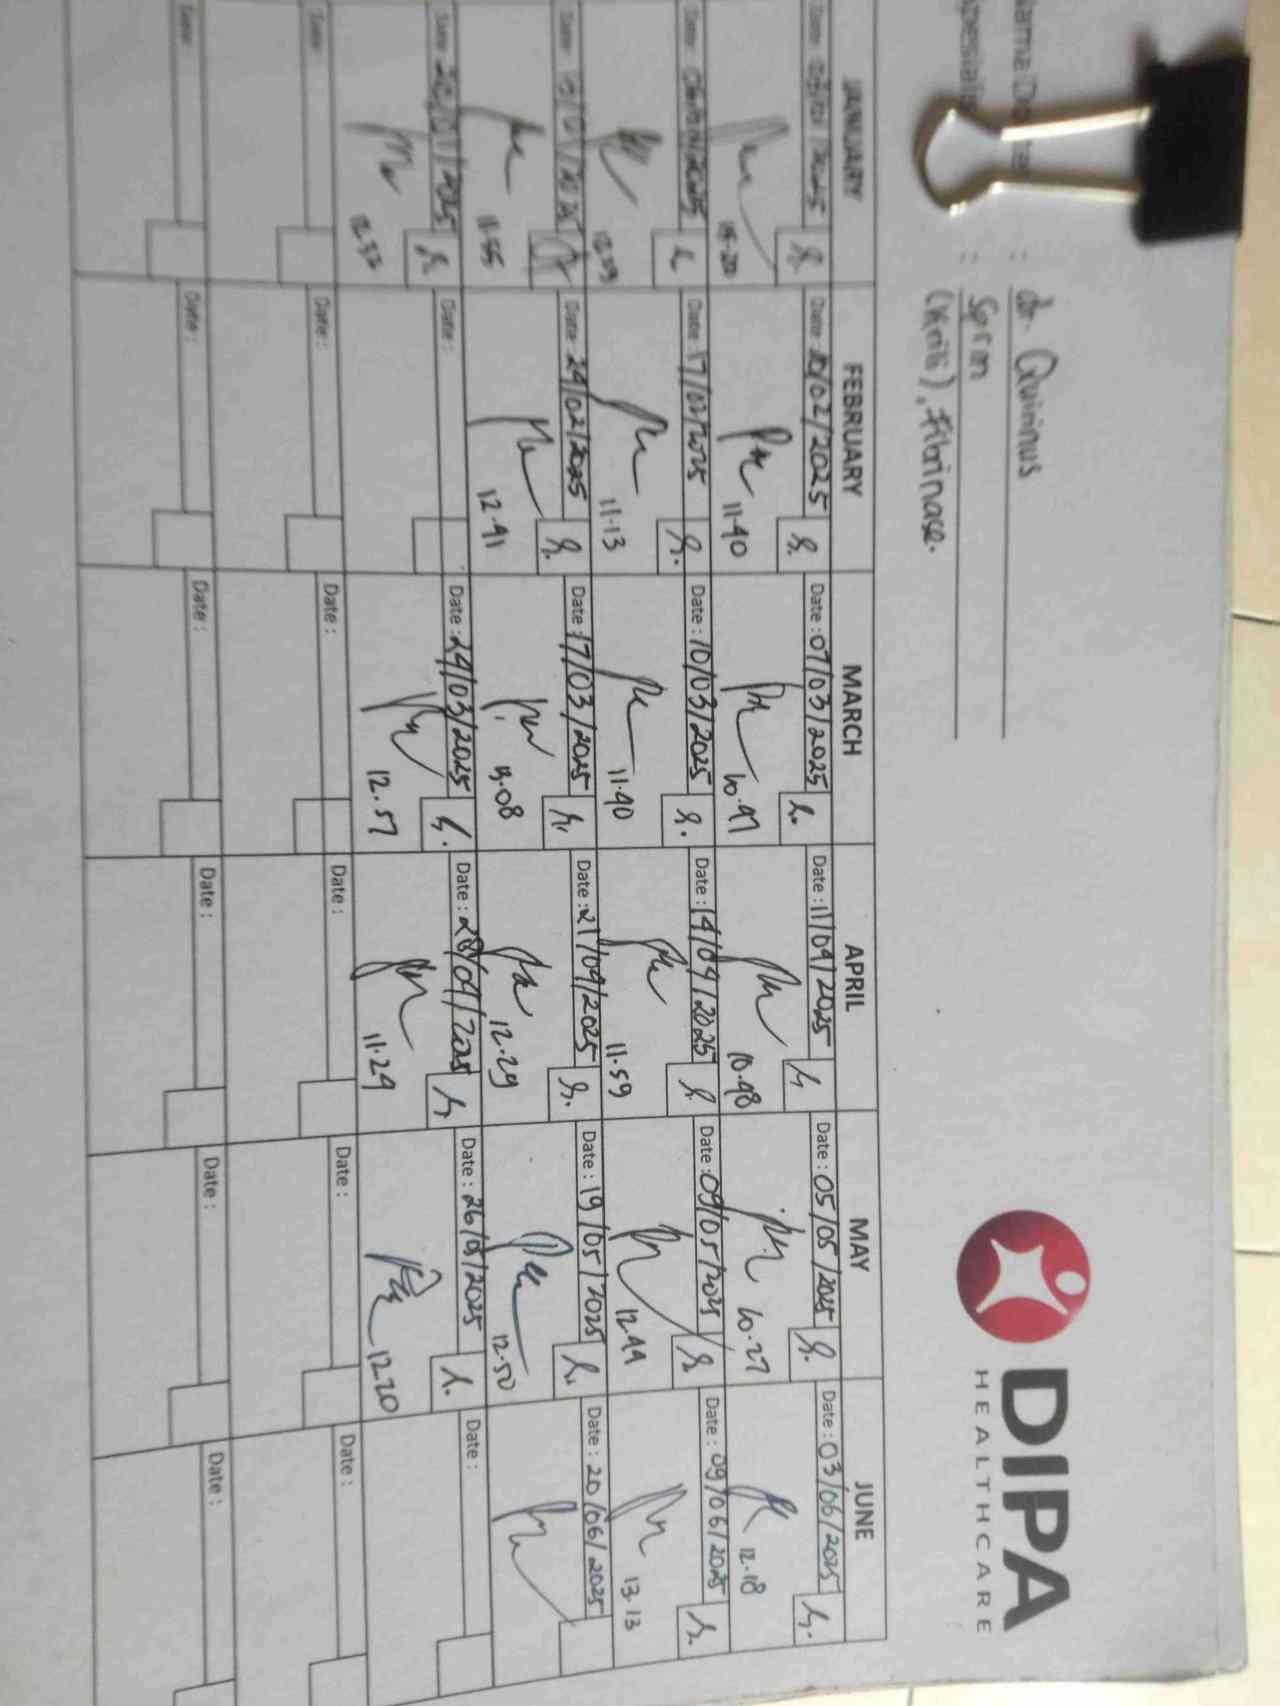 DIPA
HEALTHCARE
: dr. Quirinus
: Sprm
(Kriti), Fibrinase.
JANUARY FEBRUARY MARCH APRIL MAY JUNE
Date : Date : 10/02/2025 Date : 07/03/2025 Date : 11/04/2025 Date : 05/05/2025 Date : 03/06/2025
11.40 10.47 10.48 10.27 12.18
Date : Date : 17/02/2025 Date : 10/03/2025 Date : 14/04/2025 Date : 09/05/2025 Date : 09/06/2025
12.09 11.13 11.40 11.59 12.44 13.13
Date : Date : 24/02/2025 Date : 17/03/2025 Date : 21/04/2025 Date : 19/05/2025 Date : 20/06/2025
11.55 12.41 13.08 12.29 12.50
Date : 20/01/2025 Date : Date : 24/03/2025 Date : 28/04/2025 Date : 26/05/2025 Date :
12.37 12.57 11.29 12.20
Date : Date : Date : Date : Date : Date :
Date : Date : Date : Date : Date : Date :